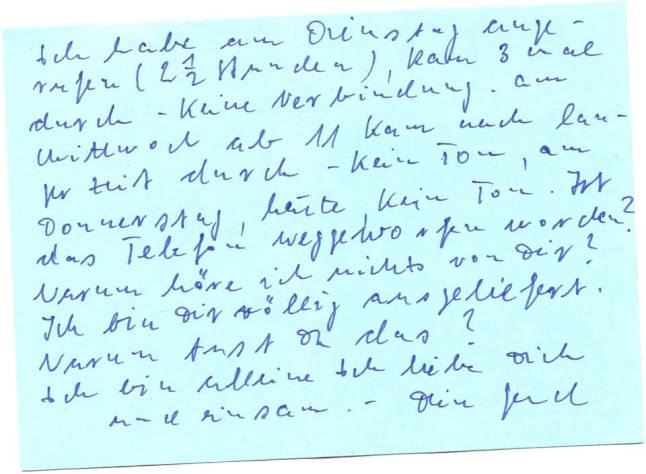 Ich habe am Dienstag ange-
rufen (2 1/2 Stunden), kam 3 mal
durch - Keine Verbindung. am
Mittwoch ab 11 kam nach lan-
ger Zeit durch - kein Ton, am
Donnerstag, heute kein Ton. Ist
das Telefon weggeworfen worden?
Warum höre ich nichts von Dir?
Ich bin Dir völlig ausgeliefert.
Warum tust Du das?
Ich bin alleine Ich liebe Dich
und einsam. - Dein